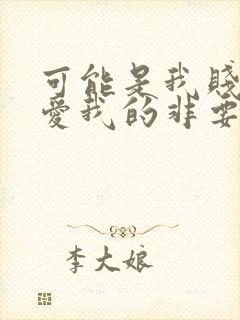 可能是我賤
愛我的非要
李大娘